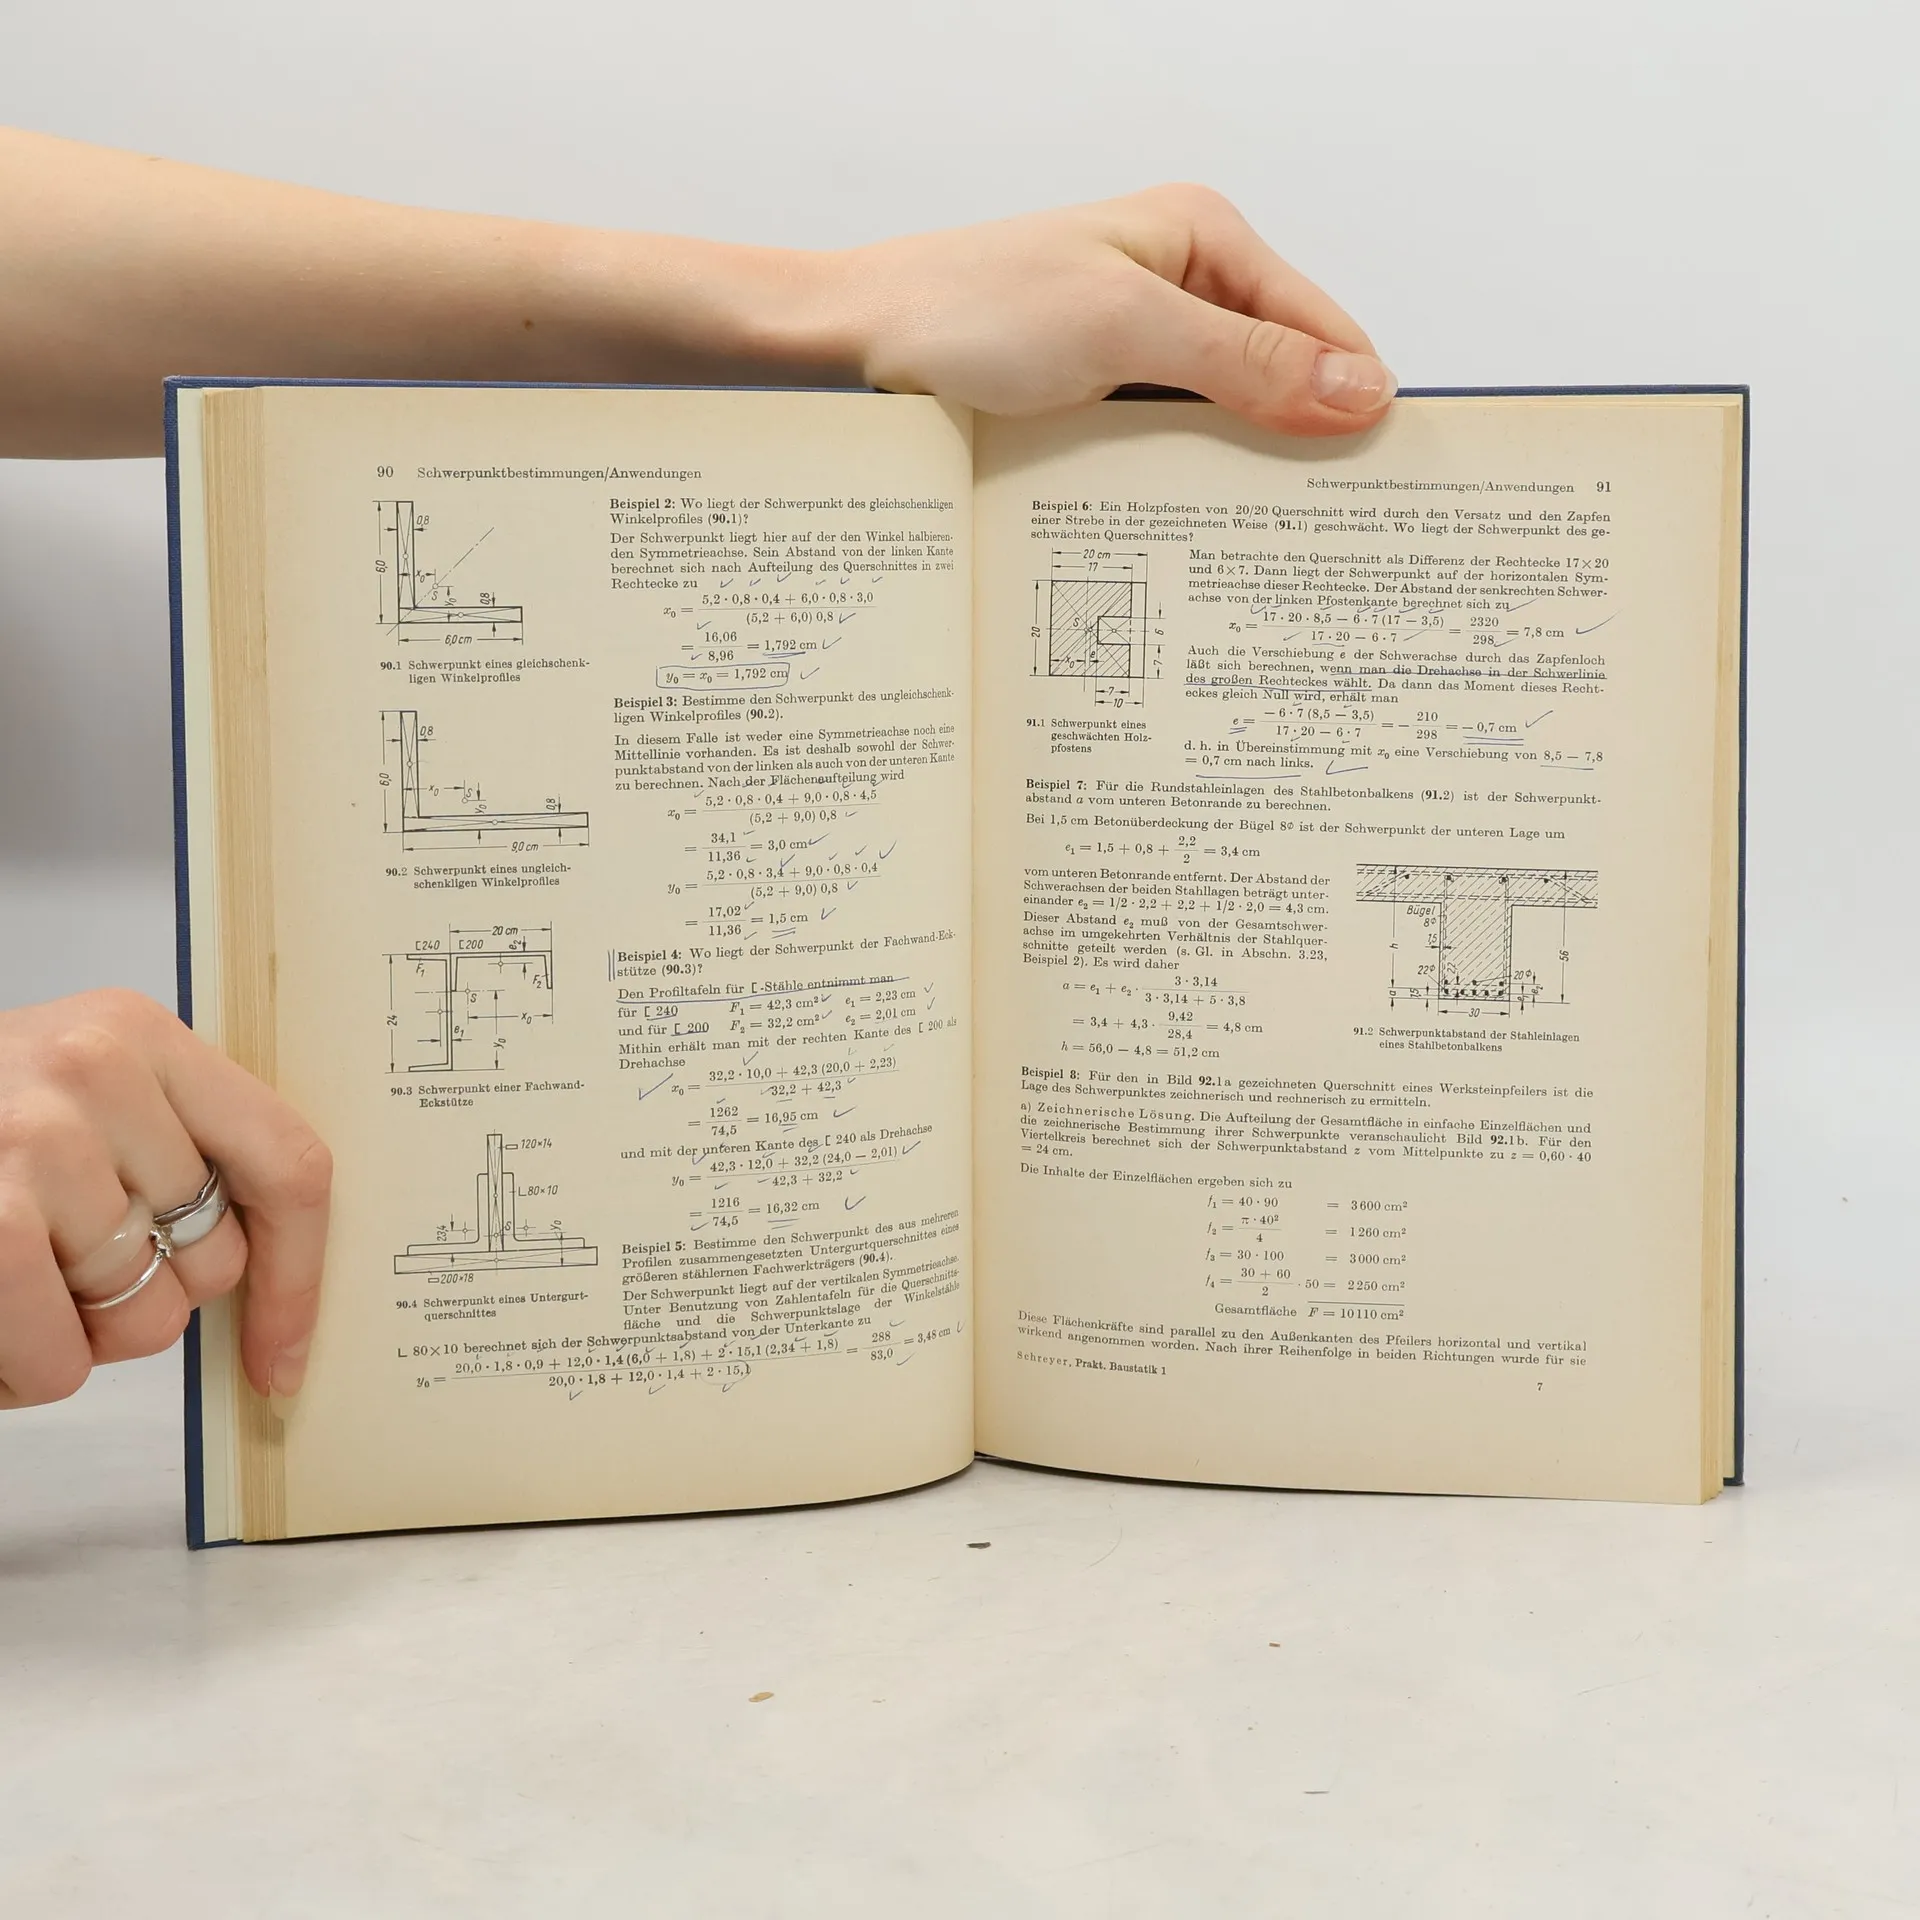 90 Schwerpunktbestimmungen/Anwendungen
0,8
6,0
x₀
S
y₀
0,8
6,0 cm
90.1 Schwerpunkt eines gleichschenk-
ligen Winkelprofiles
0,8
6,0
x₀
S
y₀
0,8
9,0 cm
90.2 Schwerpunkt eines ungleich-
schenkligen Winkelprofiles
20 cm
[240 [200
e₂
F₁
F₂
S
x₀
24
e₁
y₀
90.3 Schwerpunkt einer Fachwand-
Eckstütze
120×14
L 80×10
23,4
S
y₀
200×18
90.4 Schwerpunkt eines Untergurt-
querschnittes
Beispiel 2: Wo liegt der Schwerpunkt des gleichschenkligen
Winkelprofiles (90.1)?
Der Schwerpunkt liegt hier auf der den Winkel halbieren-
den Symmetrieachse. Sein Abstand von der linken Kante
berechnet sich nach Aufteilung des Querschnittes in zwei
Rechtecke zu
x₀ = (5,2 · 0,8 · 0,4 + 6,0 · 0,8 · 3,0) / ((5,2 + 6,0) 0,8)
= 16,06 / 8,96 = 1,792 cm
y₀ = x₀ = 1,792 cm
Beispiel 3: Bestimme den Schwerpunkt des ungleichschenk-
ligen Winkelprofiles (90.2).
In diesem Falle ist weder eine Symmetrieachse noch eine
Mittellinie vorhanden. Es ist deshalb sowohl der Schwer-
punktabstand von der linken als auch von der unteren Kante
zu berechnen. Nach der Flächenaufteilung wird
x₀ = (5,2 · 0,8 · 0,4 + 9,0 · 0,8 · 4,5) / ((5,2 + 9,0) 0,8)
= 34,1 / 11,36 = 3,0 cm
y₀ = (5,2 · 0,8 · 3,4 + 9,0 · 0,8 · 0,4) / ((5,2 + 9,0) 0,8)
= 17,02 / 11,36 = 1,5 cm
Beispiel 4: Wo liegt der Schwerpunkt der Fachwand-Eck-
stütze (90.3)?
Den Profiltafeln für [-Stähle entnimmt man
für [ 240 F₁ = 42,3 cm² e₁ = 2,23 cm
und für [ 200 F₂ = 32,2 cm² e₂ = 2,01 cm
Mithin erhält man mit der rechten Kante des [ 200 als
Drehachse
x₀ = (32,2 · 10,0 + 42,3 (20,0 + 2,23)) / (32,2 + 42,3)
= 1262 / 74,5 = 16,95 cm
und mit der unteren Kante des [ 240 als Drehachse
y₀ = (42,3 · 12,0 + 32,2 (24,0 − 2,01)) / (42,3 + 32,2)
= 1216 / 74,5 = 16,32 cm
Beispiel 5: Bestimme den Schwerpunkt des aus mehreren
Profilen zusammengesetzten Untergurtquerschnittes eines
größeren stählernen Fachwerkträgers (90.4).
Der Schwerpunkt liegt auf der vertikalen Symmetrieachse.
Unter Benutzung von Zahlentafeln für die Querschnitts-
fläche und die Schwerpunktslage der Winkelstähle
L 80×10 berechnet sich der Schwerpunktsabstand von der Unterkante zu
y₀ = (20,0 · 1,8 · 0,9 + 12,0 · 1,4 (6,0 + 1,8) + 2 · 15,1 (2,34 + 1,8)) / (20,0 · 1,8 + 12,0 · 1,4 + 2 · 15,1) = 288 / 83,0 = 3,48 cm
Schwerpunktbestimmungen/Anwendungen 91
Beispiel 6: Ein Holzpfosten von 20/20 Querschnitt wird durch den Versatz und den Zapfen
einer Strebe in der gezeichneten Weise (91.1) geschwächt. Wo liegt der Schwerpunkt des ge-
schwächten Querschnittes?
20 cm
17
20
S
6
7
x₀
e
7
10
91.1 Schwerpunkt eines
geschwächten Holz-
pfostens
Man betrachte den Querschnitt als Differenz der Rechtecke 17×20
und 6×7. Dann liegt der Schwerpunkt auf der horizontalen Sym-
metrieachse dieser Rechtecke. Der Abstand der senkrechten Schwer-
achse von der linken Pfostenkante berechnet sich zu
x₀ = (17 · 20 · 8,5 − 6 · 7 (17 − 3,5)) / (17 · 20 − 6 · 7) = 2320 / 298 = 7,8 cm
Auch die Verschiebung e der Schwerachse durch das Zapfenloch
läßt sich berechnen, wenn man die Drehachse in der Schwerlinie
des großen Rechteckes wählt. Da dann das Moment dieses Recht-
eckes gleich Null wird, erhält man
e = (− 6 · 7 (8,5 − 3,5)) / (17 · 20 − 6 · 7) = − 210 / 298 = − 0,7 cm
d. h. in Übereinstimmung mit x₀ eine Verschiebung von 8,5 − 7,8
= 0,7 cm nach links.
Beispiel 7: Für die Rundstahleinlagen des Stahlbetonbalkens (91.2) ist der Schwerpunkt-
abstand a vom unteren Betonrande zu berechnen.
Bei 1,5 cm Betonüberdeckung der Bügel 8⌀ ist der Schwerpunkt der unteren Lage um
e₁ = 1,5 + 0,8 + 2,2 / 2 = 3,4 cm
vom unteren Betonrande entfernt. Der Abstand der
Schwerachsen der beiden Stahllagen beträgt unter-
einander e₂ = 1/2 · 2,2 + 2,2 + 1/2 · 2,0 = 4,3 cm.
Dieser Abstand e₂ muß von der Gesamtschwer-
achse im umgekehrten Verhältnis der Stahlquer-
schnitte geteilt werden (s. Gl. in Abschn. 3.23,
Beispiel 2). Es wird daher
a = e₁ + e₂ · (3 · 3,14) / (3 · 3,14 + 5 · 3,8)
= 3,4 + 4,3 · 9,42 / 28,4 = 4,8 cm
h = 56,0 − 4,8 = 51,2 cm
Bügel
8⌀
h
1,5
56
22⌀
2,2
20⌀
a
1,5
30
91.2 Schwerpunktabstand der Stahleinlagen
eines Stahlbetonbalkens
Beispiel 8: Für den in Bild 92.1a gezeichneten Querschnitt eines Werksteinpfeilers ist die
Lage des Schwerpunktes zeichnerisch und rechnerisch zu ermitteln.
a) Zeichnerische Lösung. Die Aufteilung der Gesamtfläche in einfache Einzelflächen und
die zeichnerische Bestimmung ihrer Schwerpunkte veranschaulicht Bild 92.1b. Für den
Viertelkreis berechnet sich der Schwerpunktabstand z vom Mittelpunkte zu z = 0,60 · 40
= 24 cm.
Die Inhalte der Einzelflächen ergeben sich zu
f₁ = 40 · 90 = 3600 cm²
f₂ = π · 40² / 4 = 1260 cm²
f₃ = 30 · 100 = 3000 cm²
f₄ = (30 + 60) / 2 · 50 = 2250 cm²
Gesamtfläche F = 10110 cm²
Diese Flächenkräfte sind parallel zu den Außenkanten des Pfeilers horizontal und vertikal
wirkend angenommen worden. Nach ihrer Reihenfolge in beiden Richtungen wurde für sie
Schreyer, Prakt. Baustatik 1
7